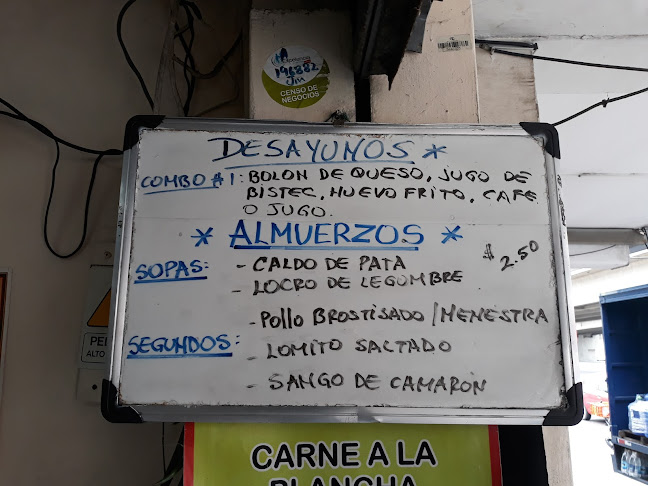 196882
Jm
CENSO DE
NEGOCIOS
DESAYUNOS *
COMBO #1: BOLON DE QUESO, JUGO DE
BISTEC, HUEVO FRITO, CAFE
O JUGO.
* ALMUERZOS *
$ 2.50
SOPAS: - CALDO DE PATA
- LOCRO DE LEGOMBRE
- POLLO BROSTISADO / MENESTRA
SEGUNDOS: - LOMITO SALTADO
- SANGO DE CAMARON
PEL
ALTO
CARNE A LA
PLANCHA